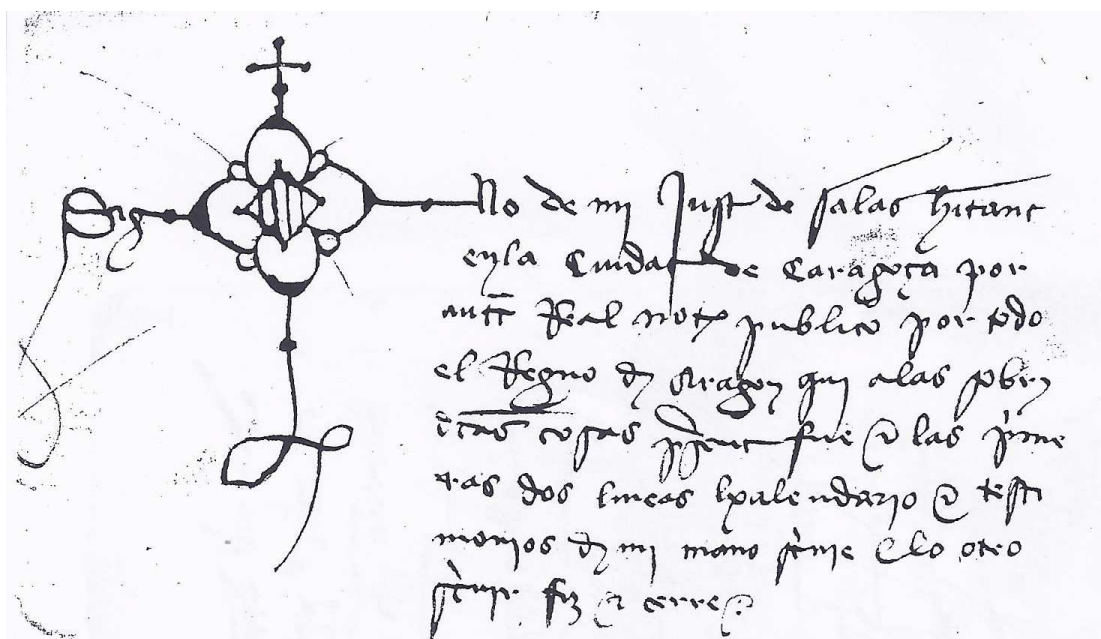 Sig no de mi Just de salas hitant
en la Ciudat de Caragoça por
autt Real not publico por todo
el Regno de Aragon qui a las sobre
ditas cosas present fue e las prime
ras dos lineas kalendario e testi
monios de mi mano scriuie e lo otro
scriuir fiz e cerre